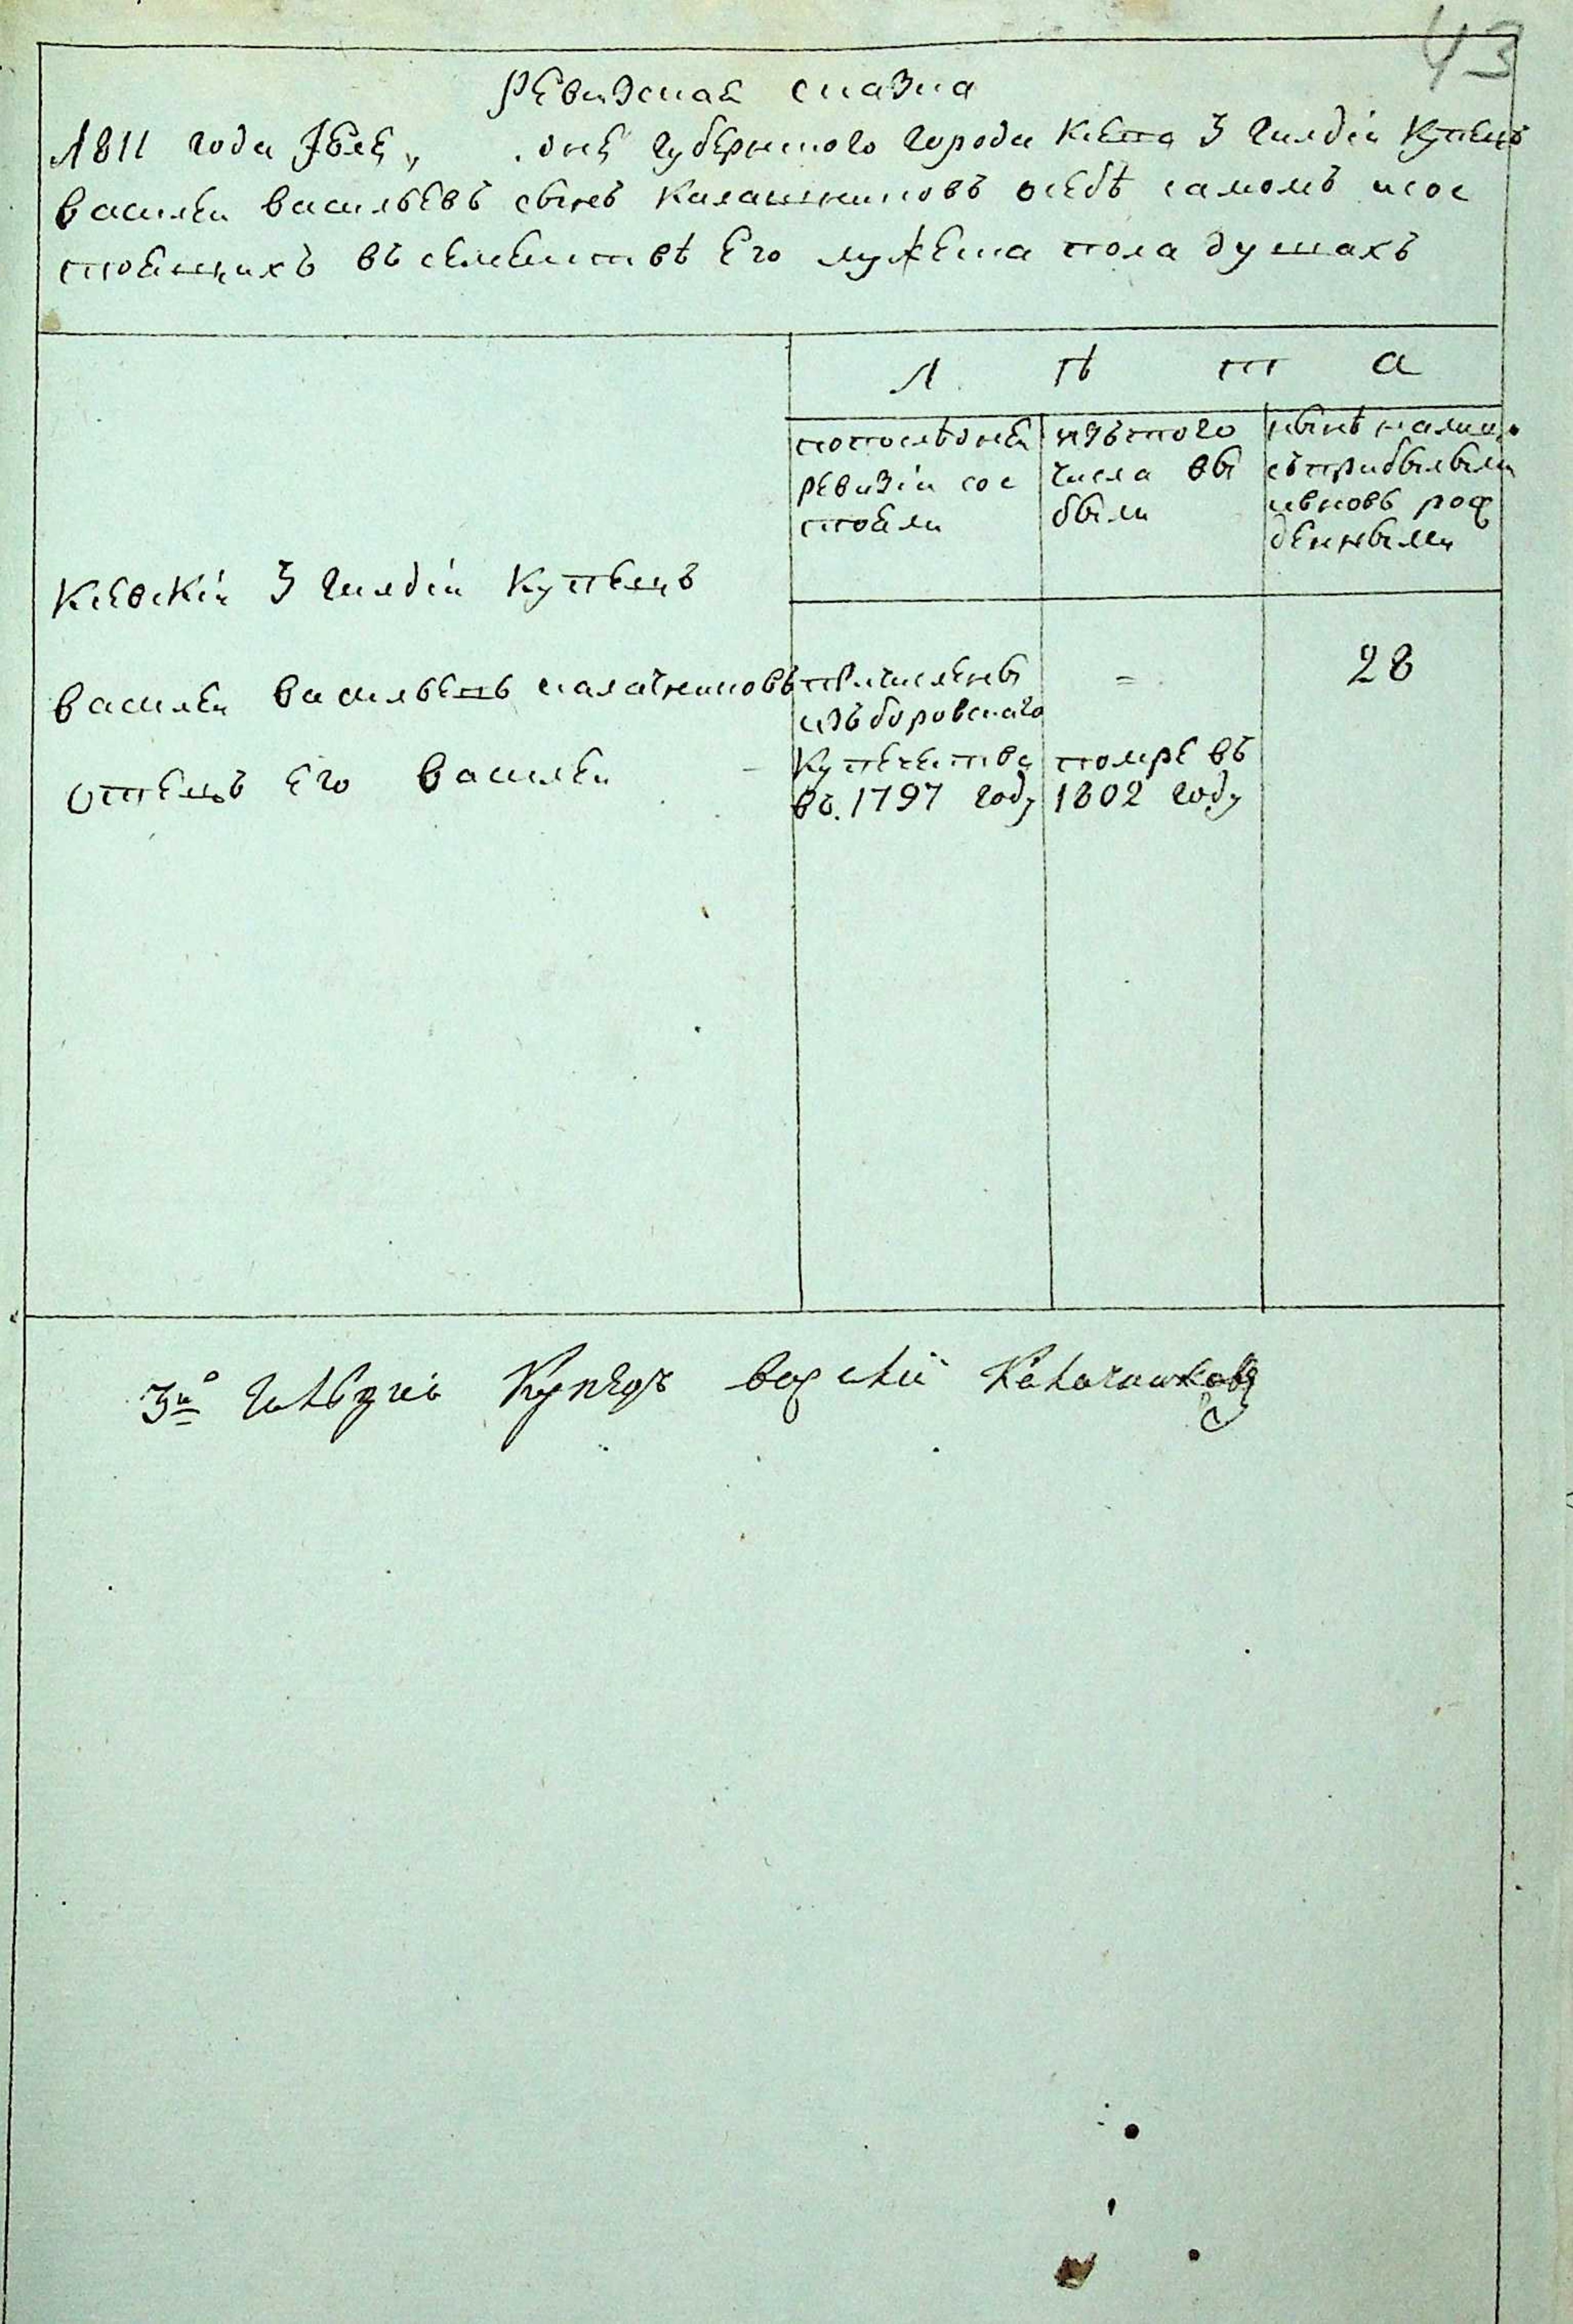 43
Ревизская сказка
1811 года Июля „ дня Губернского города Киева 3 Гилдіи Купецъ
Василеи Васильевъ сынъ Калашниковъ о себѣ самомъ и сос
тоящихъ въ семеиствѣ Его мужеска пола душахъ
Л ѣ т а
по послѣдней ревизіи сос тояли
изъ того числа вы были
нынѣ на лицо съ прибылыми и вновь рож денными
Кіевскіи 3 Гилдіи Купецъ
Василеи Васильевъ Калачниковъ
28
отецъ Его Василеи
причислены
изъ боровскаго
Купечества
въ 1797 году
помре въ
1802 году
3й Гильдіи Купецъ Василій Калачниковъ